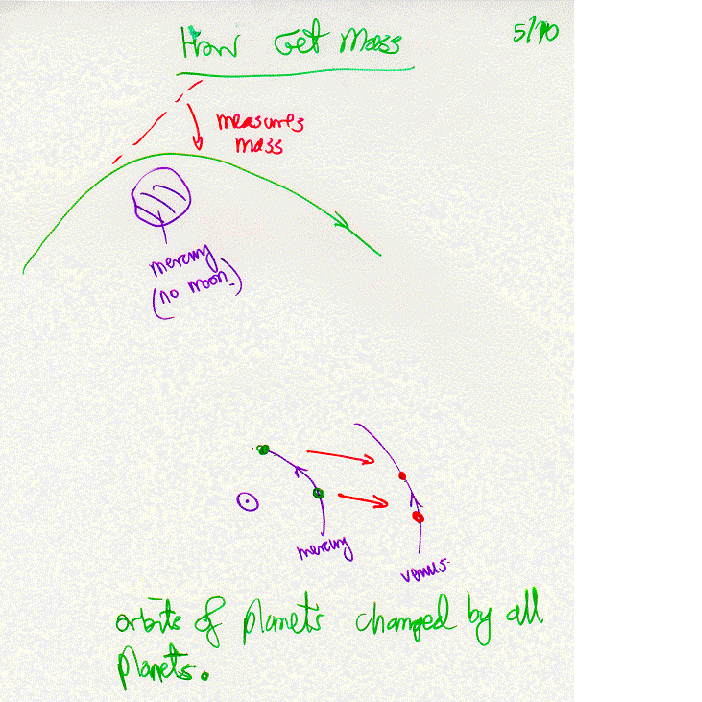 How Get Mass
5/10
measures
mass
mercury
(no moon.)
mercury
venus.
orbits of planets changed by all
planets.